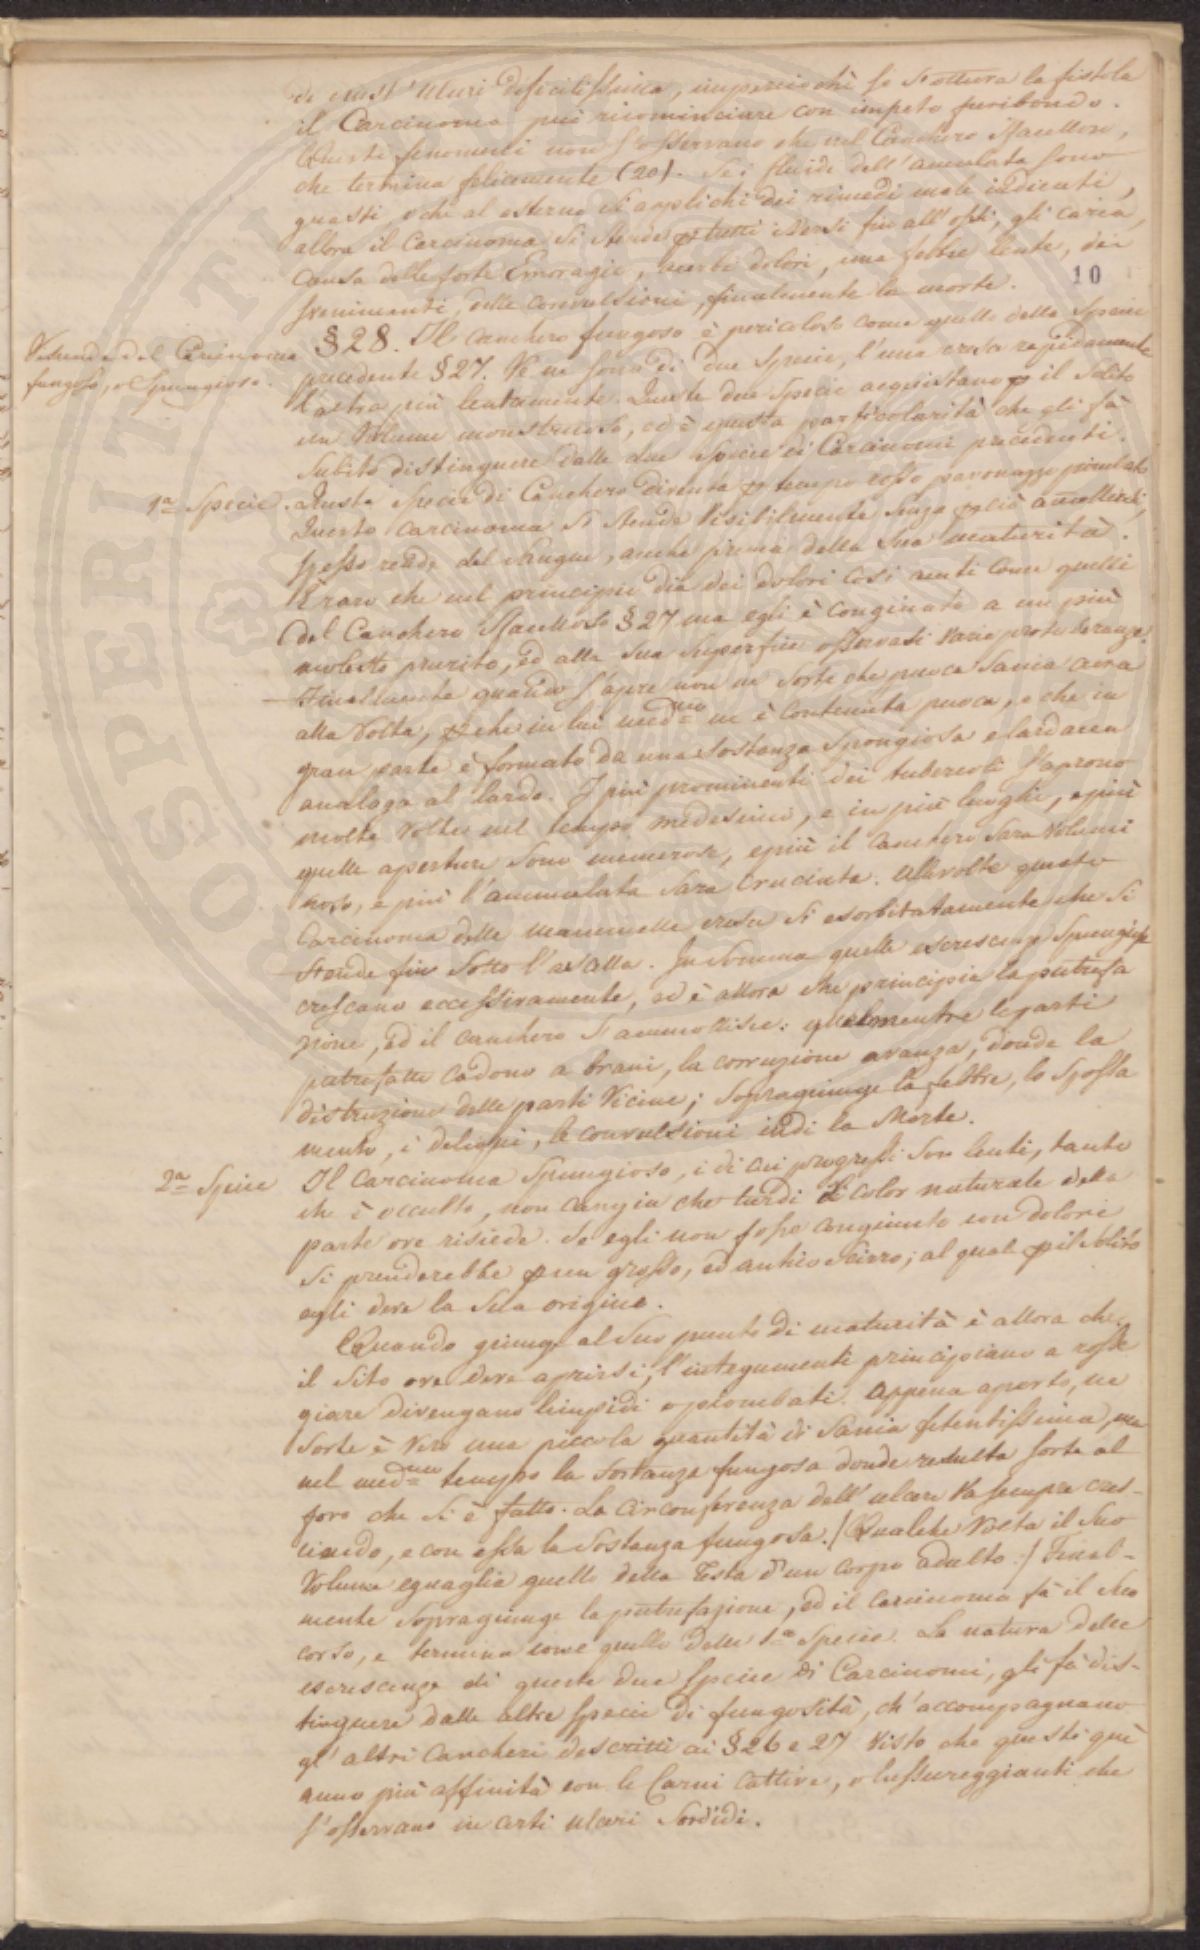 di quest'Ulceri dificilissima, imperciochè se s'ottura la fistola
il Carcinoma può ricominciare con impeto furibondo.
Questi fenomeni non s'osservano che nel Canchero Macelloso,
che termina felicemente (20). Se i fluidi dell'amalata sono
guasti, o che al esterno si applichi dei rimedi male indicati,
allora il Carcinoma si stende p tutti i versi fin all'ossi, gli caria,
causa delle forte Emoragie, acerbi dolori, una febbre lente, dei
svenimenti, delle convulsioni, finalmente la morte.
10
§28. Il canchero fungoso è pericoloso come quello della Specie
Vicende del Carcinoma
fungoso, o Spungioso.
precedente §27. Ve ne sono di due Specie, l'una cresce rapidamente
l'altra più lentamente. Queste due Specie acquistano p il Solito
un Volume monstruoso, ed è questa particolarità che gli fà
subito distinguere dalle due Specie di Carcinomi precedenti.
1ª Specie. Questa Specie di Canchero diventa p tempo rosso pavonazzo piombato
Questo Carcinoma si stende Visibilmente senza p ciò amollirsi,
spesso rende del sangue, anche prima della sua maturità.
È raro che nel principio dia dei dolori così acuti come quelli
del Canchero Macelloso §27 ma egli è congiunto a un più
molesto prurito, ed alla sua superficie osservasi varie protuberanze.
Finalmente quando s'apre non ne sorte che puoca Sania acra
alla Volta, p che in lui medmo ne è contenuta puoca, e che in
gran parte è formato da una sostanza Spongiosa e lardacea
analaga al lardo. I più prominenti dei tubercoli s'aprono
molte Volte nel tempo medesimo, e in più luoghi, e più
quelle aperture sono numerose, e più il Canchero sara Volumi
noso, e più l'ammalata sara Cruciata. Allevolte questo
Carcinoma delle mammelle cresce sì esorbitatamente che si
stende fin sotto l'ascella. In somma quelle escrescenze Spungiose
crescano eccessivamente, ed è allora che principia la putrefa
zione, ed il canchero s'ammollisce: mentre le parti
putrefatte cadono a brani, la corruzione avanza, donde la
distruzione delle parti Vicine; sopragiunge la febbre, lo spossa
mento, i deliri, le convulsioni indi la Morte.
2ª Specie Il Carcinoma Spungioso, i di cui progressi son lenti, tanto
che è occulto, non cangia che tardi il color naturale della
parte ove risiede. Se egli non fosse congiunto con dolori
si prenderebbe p un grosso, ed antico Scirro; al quale p il solito
egli deve la sua origine.
Quando giunge al suo punto di maturità è allora che
il sito ove deve aprirsi, l'integumenti principiano a rosse
giare divengano limpidi o piombati. Appena aperto, ne
sorte è vero una piccola quantità di Sania fetentissima, ma
nel medmo tempo la sostanza fungosa donde resulta sorte al
foro che si è fatto. La circonferenza dell'ulcere và sempre cres-
ciendo, e con essa la Sostanza fungosa. /Qualche Volta il suo
Volume eguaglia quello della Testa d'un corpo adulto:/ Final-
mente sopragiunge la putrefazione, ed il Carcinoma fà il suo
corso, e termina come quello della 1ª Specie. La natura delle
escrescenze di queste due Specie di Carcinomi, gli fà dis-
tinguere dalle altre Specie di fungosità, ch'accompagnano
gl'altri Cancheri descritti ai §26 e 27 Visto che questi quì
anno più affinità con le Carni Cattive, o lussureggianti che
s'osservano in certi ulceri Sordidi.